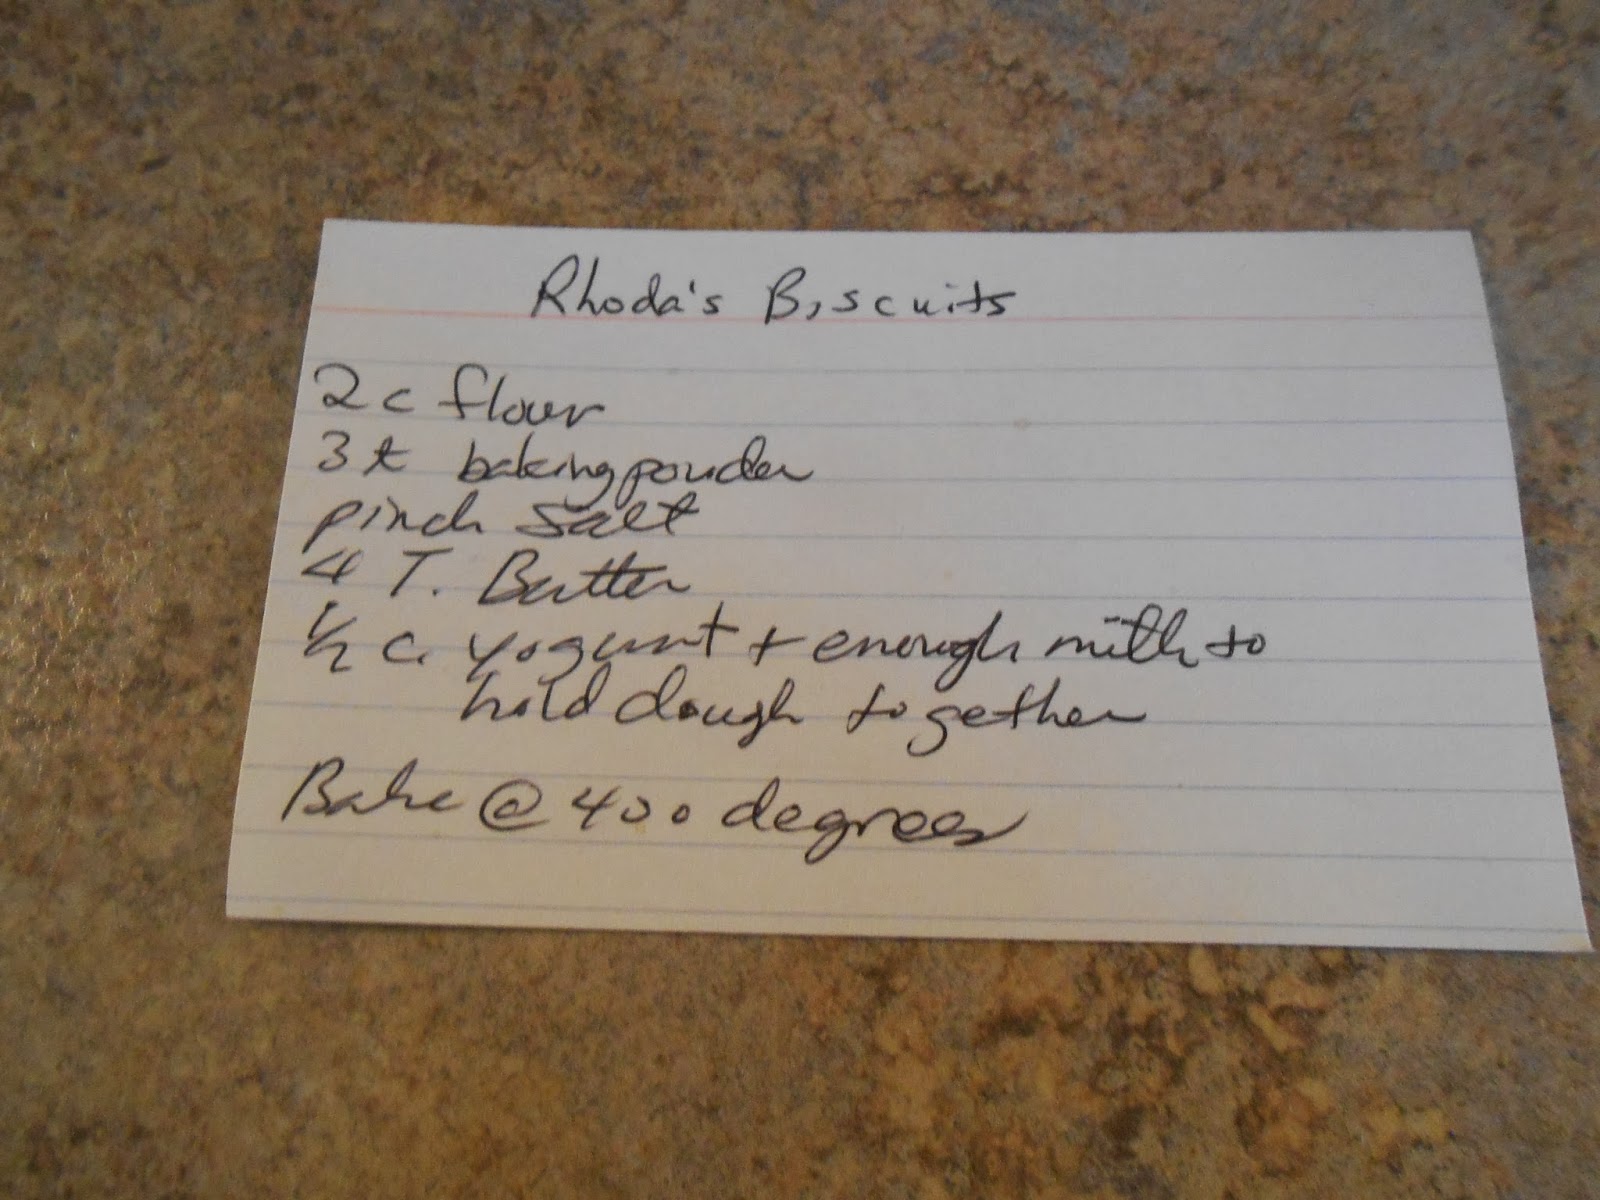 Rhoda's Biscuits
2 c flour
3 t baking powder
pinch salt
4 T. Butter
1/2 c. yogurt + enough milk to
hold dough together
Bake @ 400 degrees